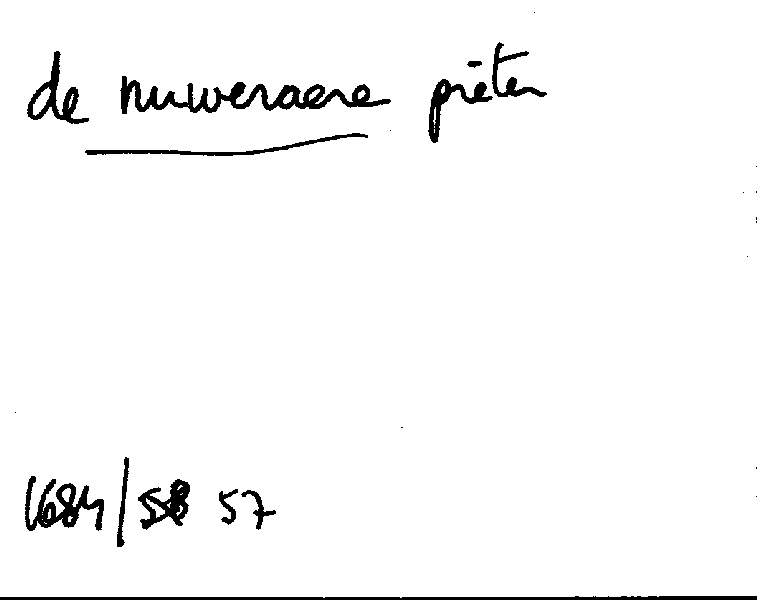 de nuweraere prêter
1684/58 57